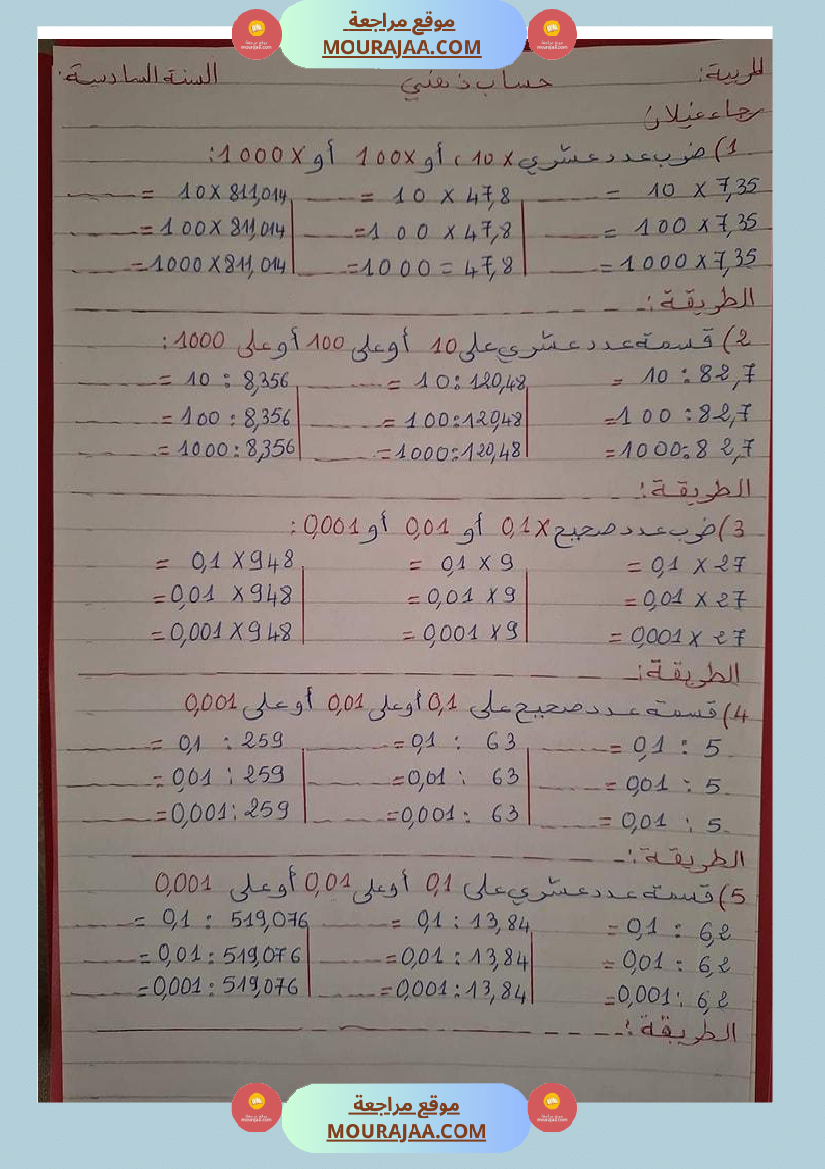 موقع مراجعة
MOURAJAA.COM
المربية: حساب ذهني السنة السادسة:
رجاء عيلان
1) ضرب عدد عشري x 10 أو x100 أو x 1000:
7,35 x 10 = 47,8 x 10 = 811,014 x 10 =
7,35 x 100 = 47,8 x 100 = 811,014 x 100 =
7,35 x 1000 = 47,8 = 1000 = 811,014 x 1000 =
الطريقة:
2) قسمة عدد عشري على 10 أو على 100 أو على 1000:
82,7 : 10 = 120,48 : 10 = 8,356 : 10 =
82,7 : 100 = 120,48 : 100 = 8,356 : 100 =
82,7 : 1000 = 120,48 : 1000 = 8,356 : 1000 =
الطريقة:
3) ضرب عدد صحيح x 0,1 أو 0,01 أو 0,001:
27 x 0,1 = 9 x 0,1 = 948 x 0,1 =
27 x 0,01 = 9 x 0,01 = 948 x 0,01 =
27 x 0,001 = 9 x 0,001 = 948 x 0,001 =
الطريقة:
4) قسمة عدد صحيح على 0,1 أو على 0,01 أو على 0,001
5 : 0,1 = 63 : 0,1 = 259 : 0,1 =
5 : 0,01 = 63 : 0,01 = 259 : 0,01 =
5 : 0,01 = 63 : 0,001 = 259 : 0,001 =
الطريقة:
5) قسمة عدد عشري على 0,1 أو على 0,01 أو على 0,001
6,2 : 0,1 = 13,84 : 0,1 = 519,076 : 0,1 =
6,2 : 0,01 = 13,84 : 0,01 = 519,076 : 0,01 =
6,2 : 0,001 = 13,84 : 0,001 = 519,076 : 0,001 =
الطريقة:
موقع مراجعة
MOURAJAA.COM